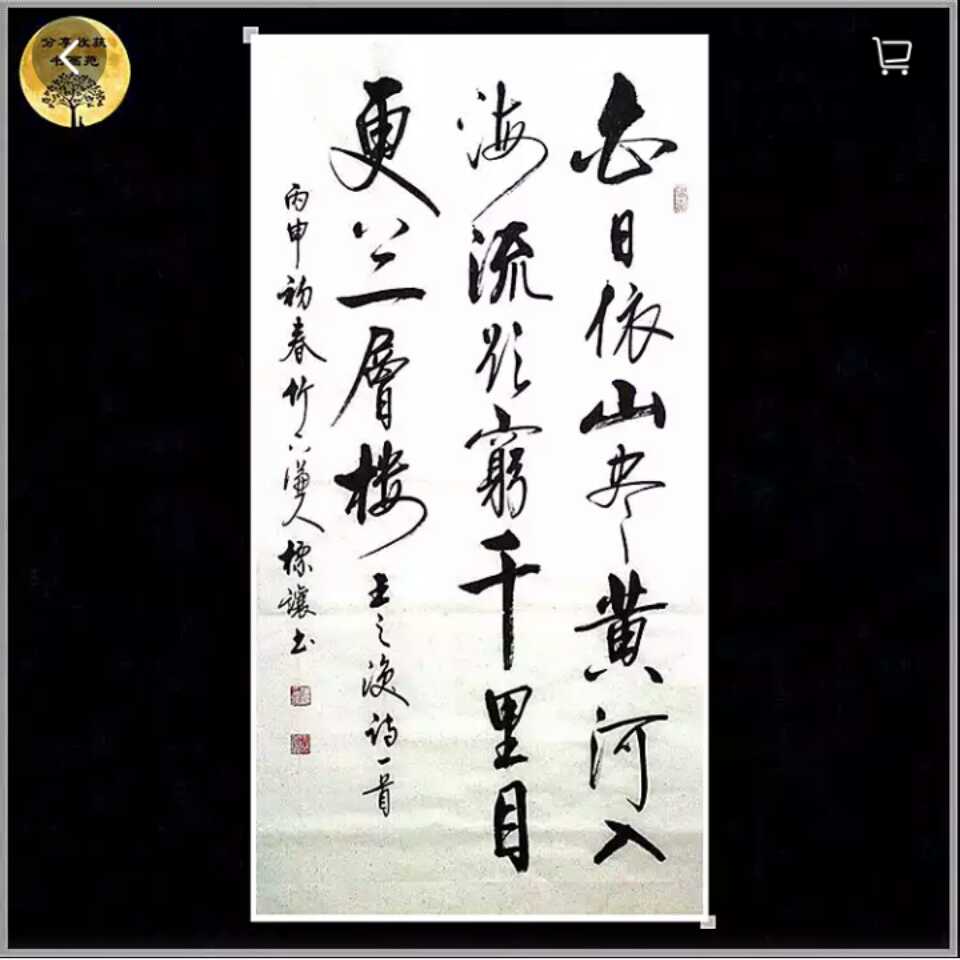 分享收获
书画苑
白日依山尽黄河入
海流欲窮千里目
更上一層楼
王之涣诗一首
丙申初春竹下谦人標讓书